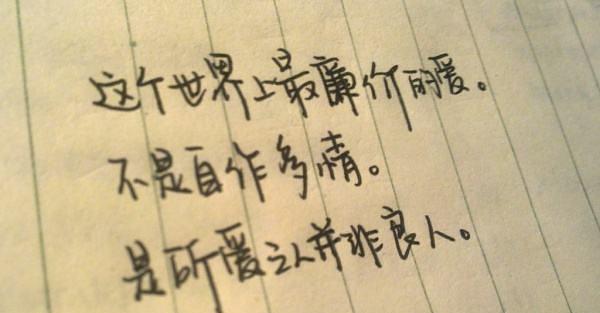 这个世界上最廉价的爱。
不是自作多情。
是所爱之人并非良人。